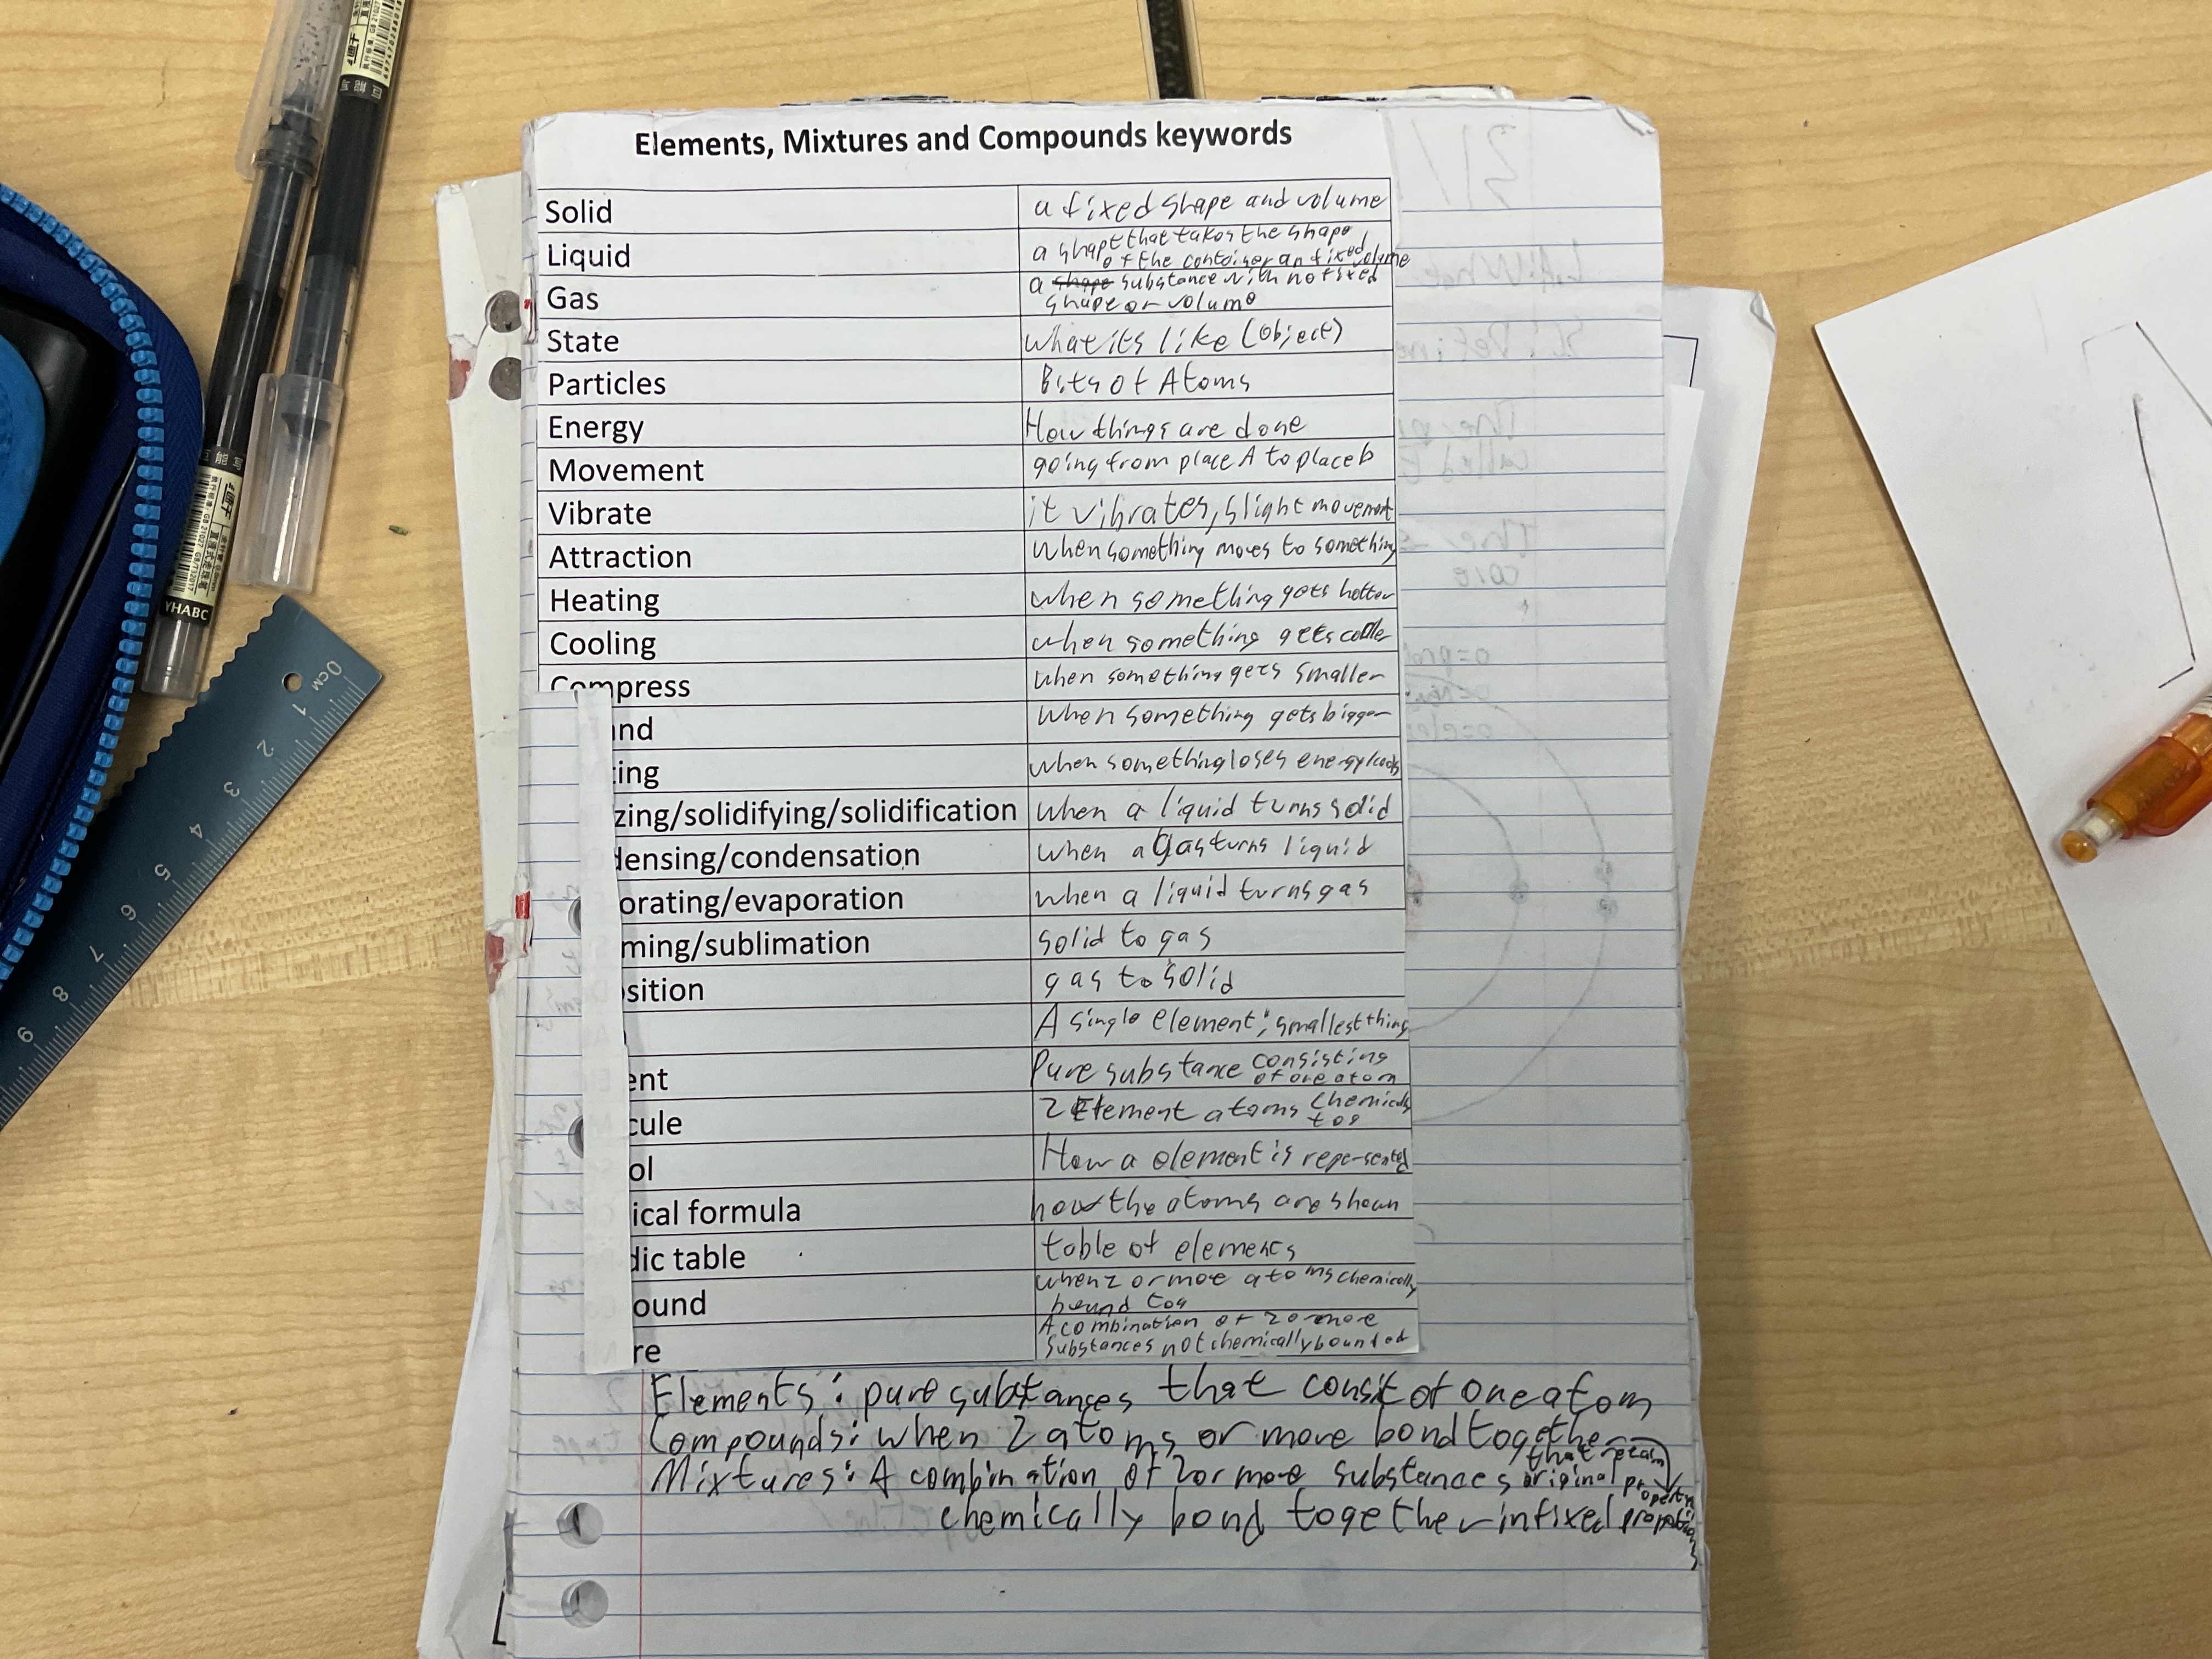 Elements, Mixtures and Compounds keywords
Solid a fixed shape and volume
Liquid a shapt that takes the shape
of the container an fixed volume
Gas a shape substance with no fixed
shape or volume
State what its like (object)
Particles Bits of Atoms
Energy How things are done
Movement going from place A to place b
Vibrate it vibrates, slight movement
Attraction when something moves to something
Heating when something gets hotter
Cooling when something gets
Compress when something gets smaller
and when something gets bigger
ting when something loses energy/cools
zing/solidifying/solidification when a liquid turns solid
densing/condensation when a Gas turns liquid
orating/evaporation when a liquid turns gas
ming/sublimation solid to gas
sition gas to solid
A single element; smallest thing
ent Pure substance consisting
of one atom
cule 2 Element atoms chemically
tog
ol How a element is
ical formula how the atoms are shown
dic table table of elements
ound when 2 or moe atoms chemically
bound tog
re A combination of 2 o more
substances not chemically bounded
Elements: pure substances that consit of one atom
Compounds: when 2 atoms or more bond together
Mixtures: A combination of 2 or more substances that retain original
chemically bond together in fixed
0CM 1 2 3 4 5 6 7 8 9
YHABC